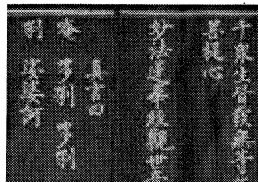 千眾生皆發無等
菩提心
妙法蓮華經觀世音
真言曰
唵 多唎 多唎
唎 娑婆訶